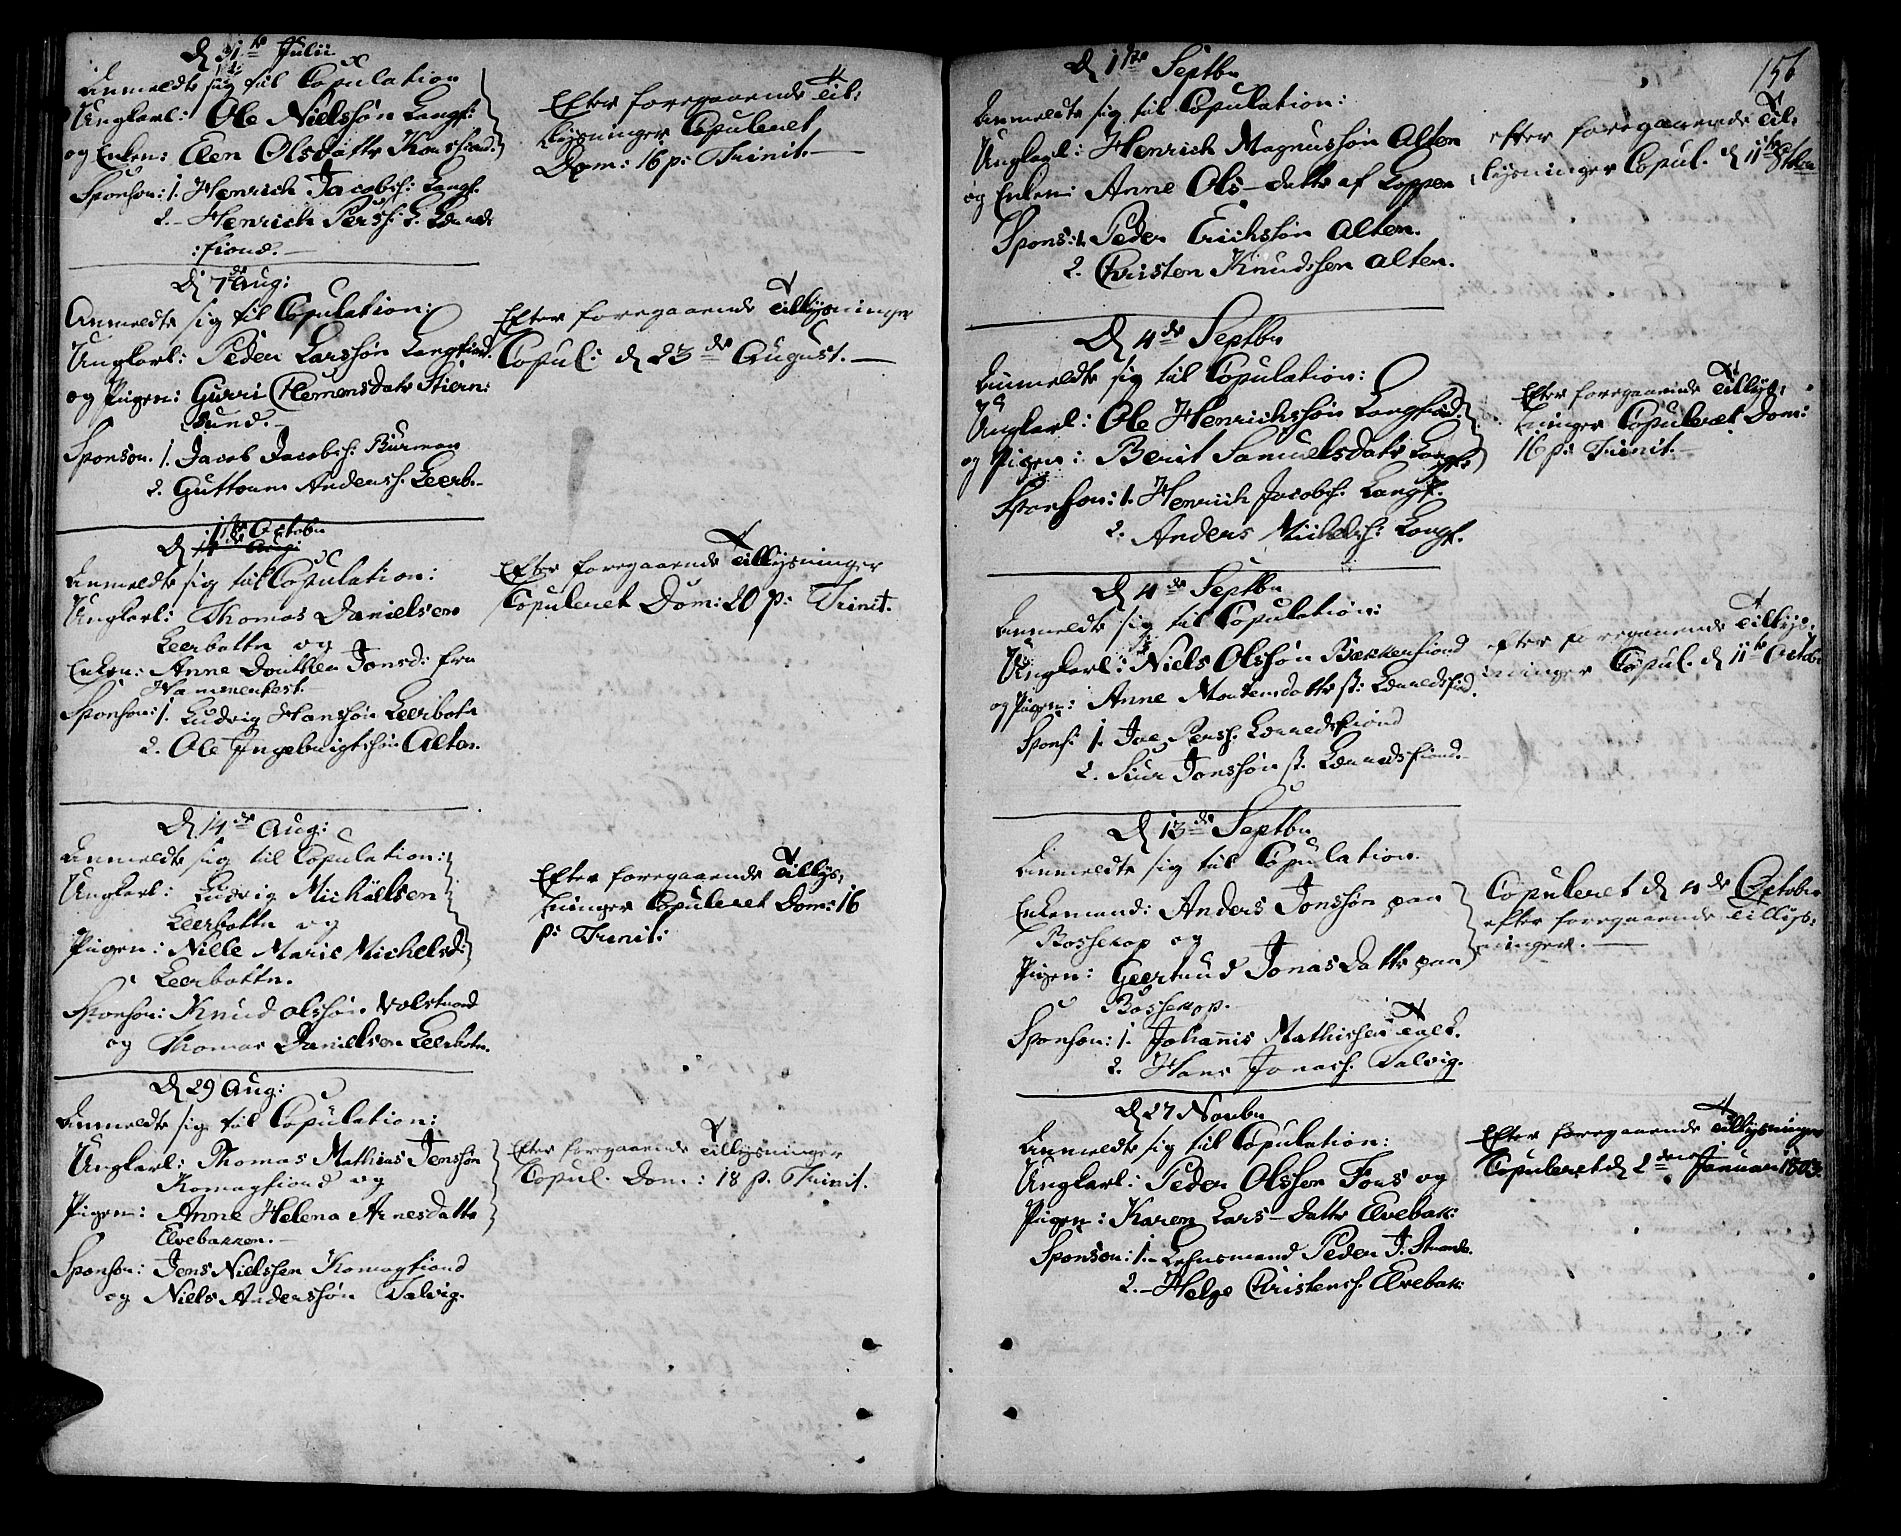 D 31te Julii
Anmeldte sig til Copulation
Ungkarl: Ole Nielssøn Langf:
og Enken: Elen Olsdatter Korsfiord.
Sponson: 1. Henrich Jacobs: Langf.
2. Henrich Pers:
:fiord.
Efter foregaaende Til:
lysninger Copuleret
Dom: 16 p: Trinit.
D 7de Aug:
Anmeldte sig til Copulation:
Ungkarl: Peder Larssøn Langfiord.
og Pigen: Gurri Clemensdatr Stiern:
sund.
Sponson. 1. Jacob Jacobs: Burman
2. Guttorm Anders: Leerb.
Efter foregaaende Tillysninger
Copul: d 23de August.
1ste Octobr
D 14de Aug:
Anmeldte sig til Copulation:
Ungkarl: Thomas Danielsen
Leerbotten og
Enken: Anne Dorthea Jonsd: fra
Hammerfest.
Sponson: 1. Ludvig Hanssøn Leerbotn
2. Ole Ingebrigtssøn Alten.
Efter foregaaende Tillysninger
Copuleret Dom: 20 p: Trinit.
D 14de Aug:
Anmeldte sig til Copulation:
Ungkarl: Ludvig Michælsen
Leerbotten og
Pigen: Nille Marie Michelsd:
Leerbotten.
Sponson: Knud Olssøn Wolstrand
og Thomas Danielsen Leerbotn.
Efter foregaaende Tillys:
ninger Copuleret Dom: 16
p: Trinit:
D 29 Aug:
Anmeldte sig til Copulation:
Ungkarl: Thomas Mathias Jenssøn
Komagfiord og
Pigen: Anne Helena Arnesdatter
Elvebakken.
Sponson: Jens Nielssen Komagfiord
og Niels Anderssøn Talvig.
Efter foregaaende Tillysninger
Copul. Dom: 18 p. Trinit.
156
D 1ste Septbr
Anmeldte sig til Copulation:
Ungkarl: Henrich Magnussøn Alten
og Enken: Anne Ols-datter af Loppen
Spons: 1. Peder Erichssøn Alten.
2. Christen Knudssen Alten.
efter foregaaende Til:
lysninger Copul. d 11te
D 4de Septbr
Anmeldte sig til Copulation:
Ungkarl: Ole Henrichssøn Langfiord.
og Pigen: Berit Samuelsdatr Langf:
Sponson: 1. Henrich Jacobs: Langf.
2. Anders Michels: Langf.
Efter foregaaende Tillys:
ninger Copuleret Dom:
16 p: Trinit.
D 4de Septbr
Anmeldte sig til Copulation:
Ungkarl: Niels Olssøn Bækkerfiord
og Pigen: Anne Mortensdatter
Spons: 1. Pers:
2. Siur Jonssøn
efter foregaaende Tillys:
ninger Copul. d 11te Octobr
D 13de Septbr
Anmeldte sig til Copulation.
Enkemand: Anders Jonssøn paa
Bossekop og
Pigen: Geertrud Jonasdatter paa
Bossekop.
Sponson: 1. Johannis Mathissen
2. Hans Jonas: Talvig.
Copuleret d 4de Octobr
efter foregaaende Tillys:
ninger.
D 27 Novbr
Anmeldte sig til Copulation:
Ungkarl: Peder Olssen Fors og
Pigen: Karen Lars-datter Elvebak:
Sponson: 1. Lehnsmand Peder J.
2. Helge Christens: Elvebak:
Efter foregaaende Tillysninger
Copuleret d 2den Januar 1803.